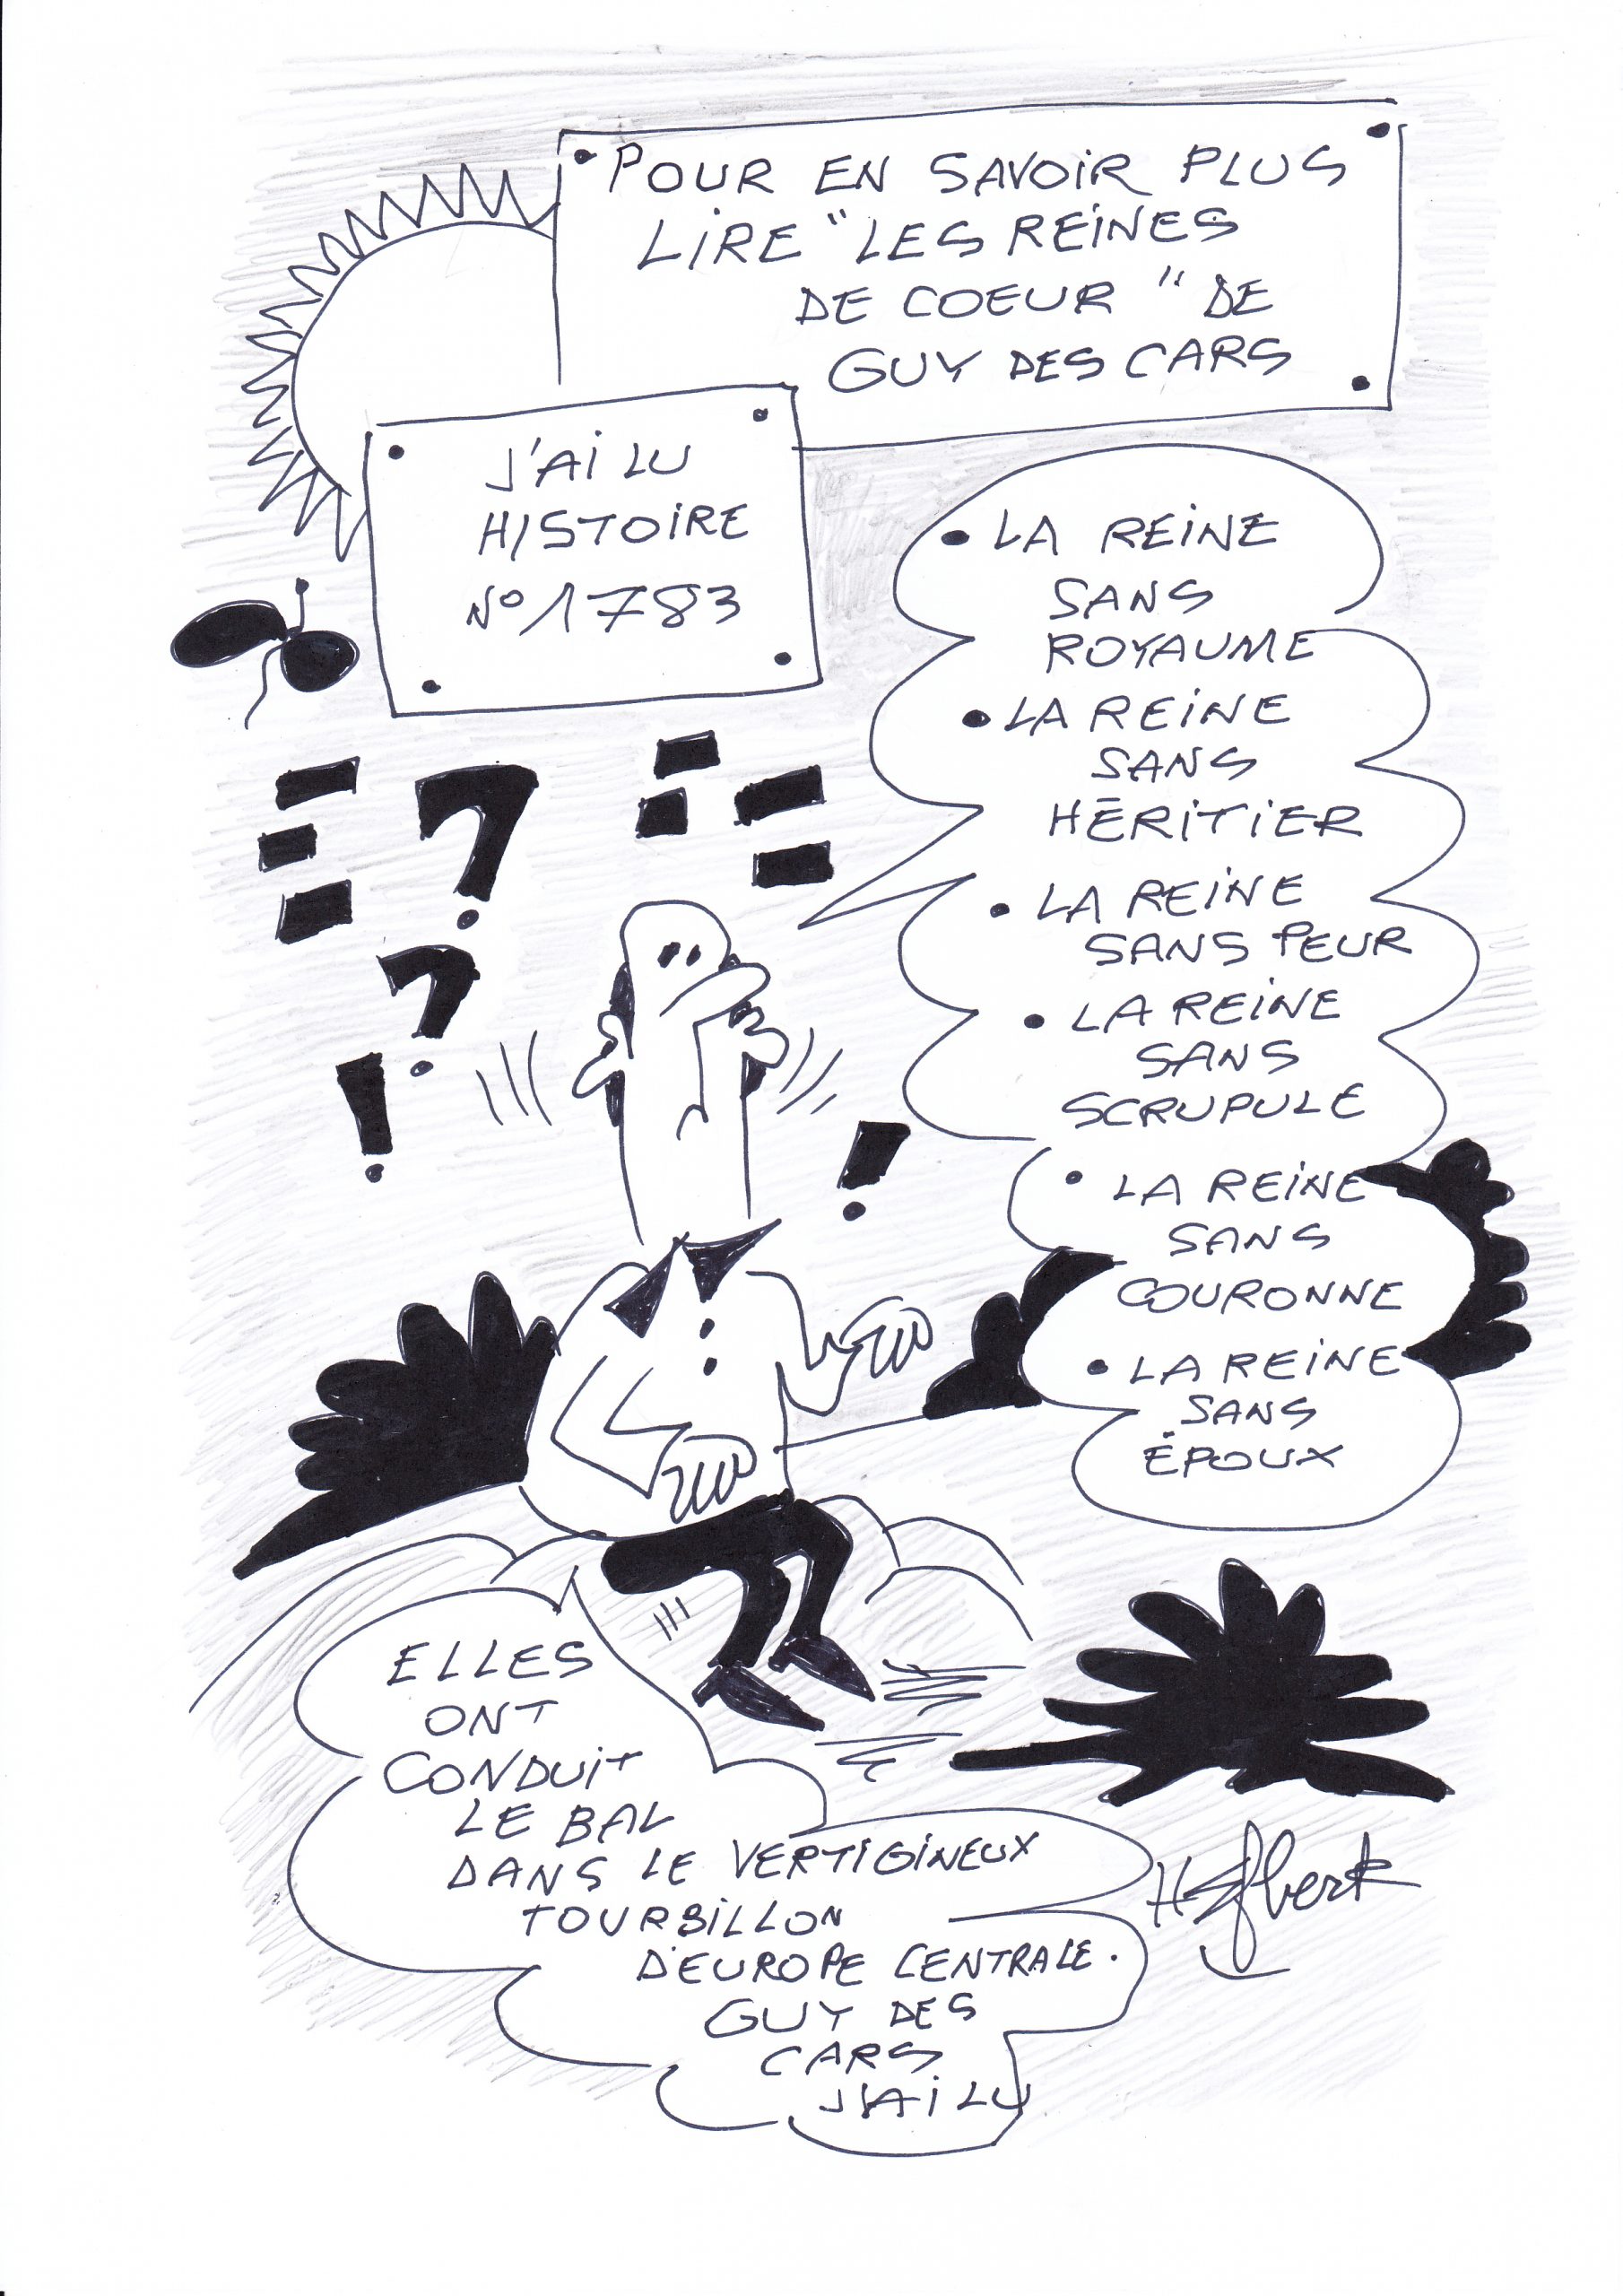 • POUR EN SAVOIR PLUS
LIRE "LES REINES
DE COEUR" DE
GUY DES CARS
J'AI LU
HISTOIRE
N° 1783
• LA REINE
SANS
ROYAUME
• LA REINE
SANS
HÉRITIER
• LA REINE
SANS PEUR
• LA REINE
SANS
SCRUPULE
• LA REINE
SANS
COURONNE
• LA REINE
SANS
ÉPOUX
? ? ! !
ELLES
ONT
CONDUIT
LE BAL
DANS LE VERTIGINEUX
TOURBILLON
D'EUROPE CENTRALE.
GUY DES
CARS
J'AI LU